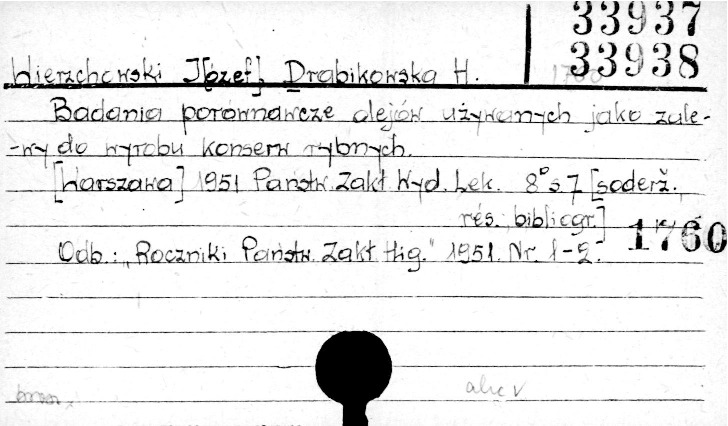 33937
33938
Wierzchowski J[ózef], Drabikowska H.
Badania porównawcze olejów używanych jako zale-
-wy do wyrobu konserw rybnych.
[Warszawa] 1951 Państw. Zakł. Wyd. Lek. 8° s. 7 [soderž.,
rés., bibliogr.]
1760
Odb.: "Roczniki Państw. Zakł. Hig." 1951. Nr. 1-2.